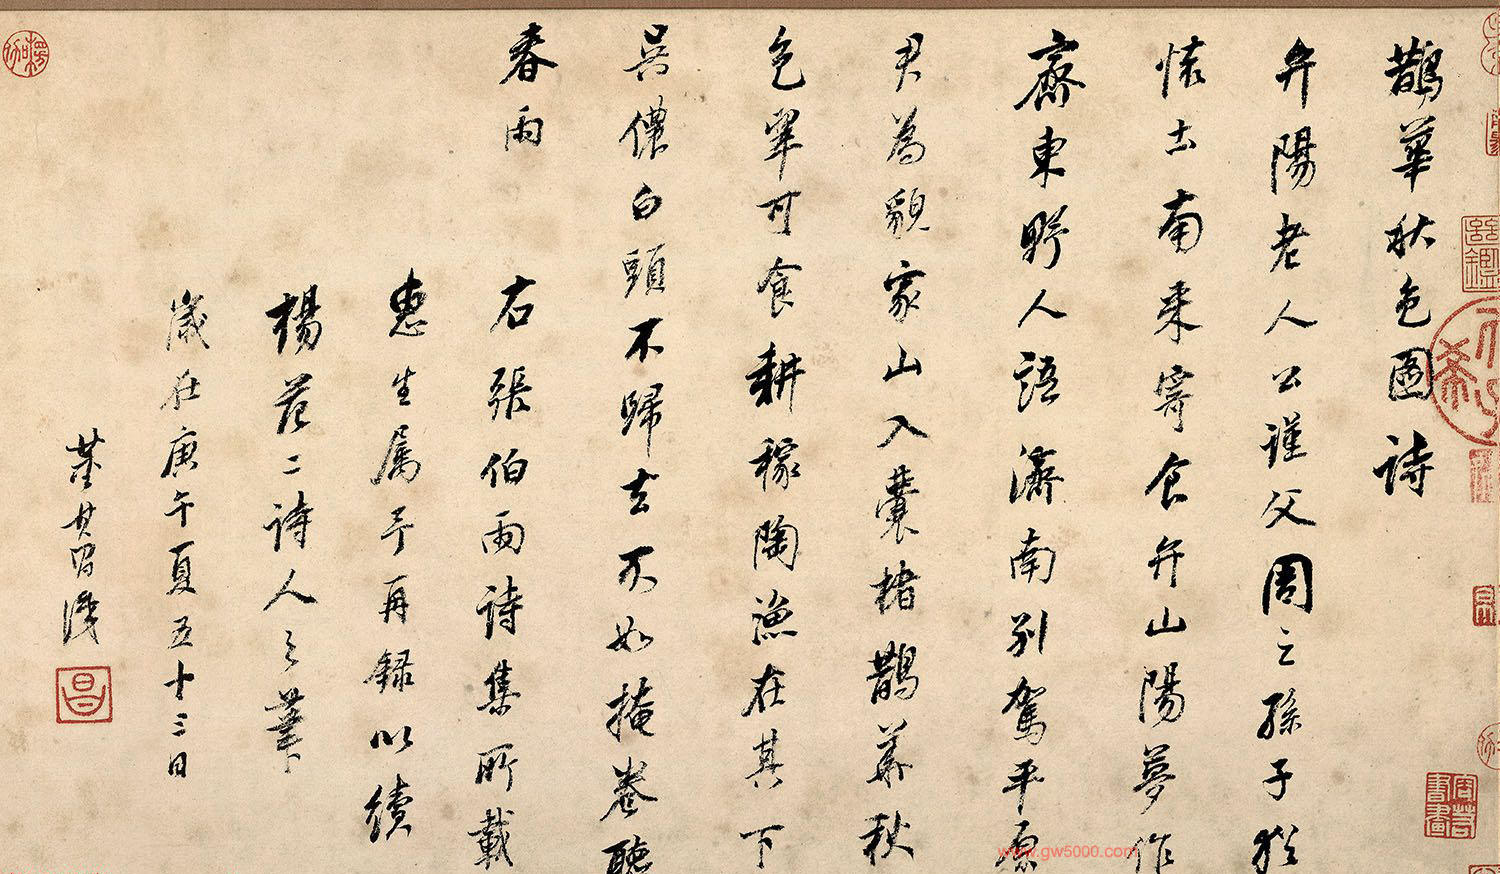 鵲華秋色圖詩
弁陽老人公謹父周之孫子猶
懷土南來寄食弁山陽夢作
齊東野人語濟南別駕平原
君為貌家山入囊楮鵲華秋
色翠可食耕稼陶漁在其下
吳儂白頭不歸去不如掩卷聽
春雨
右張伯雨詩集所載
惠生属予再録以續
楊范二詩人之筆
歲在庚午夏五十三日
董其昌識
昌
www.gw5000.com